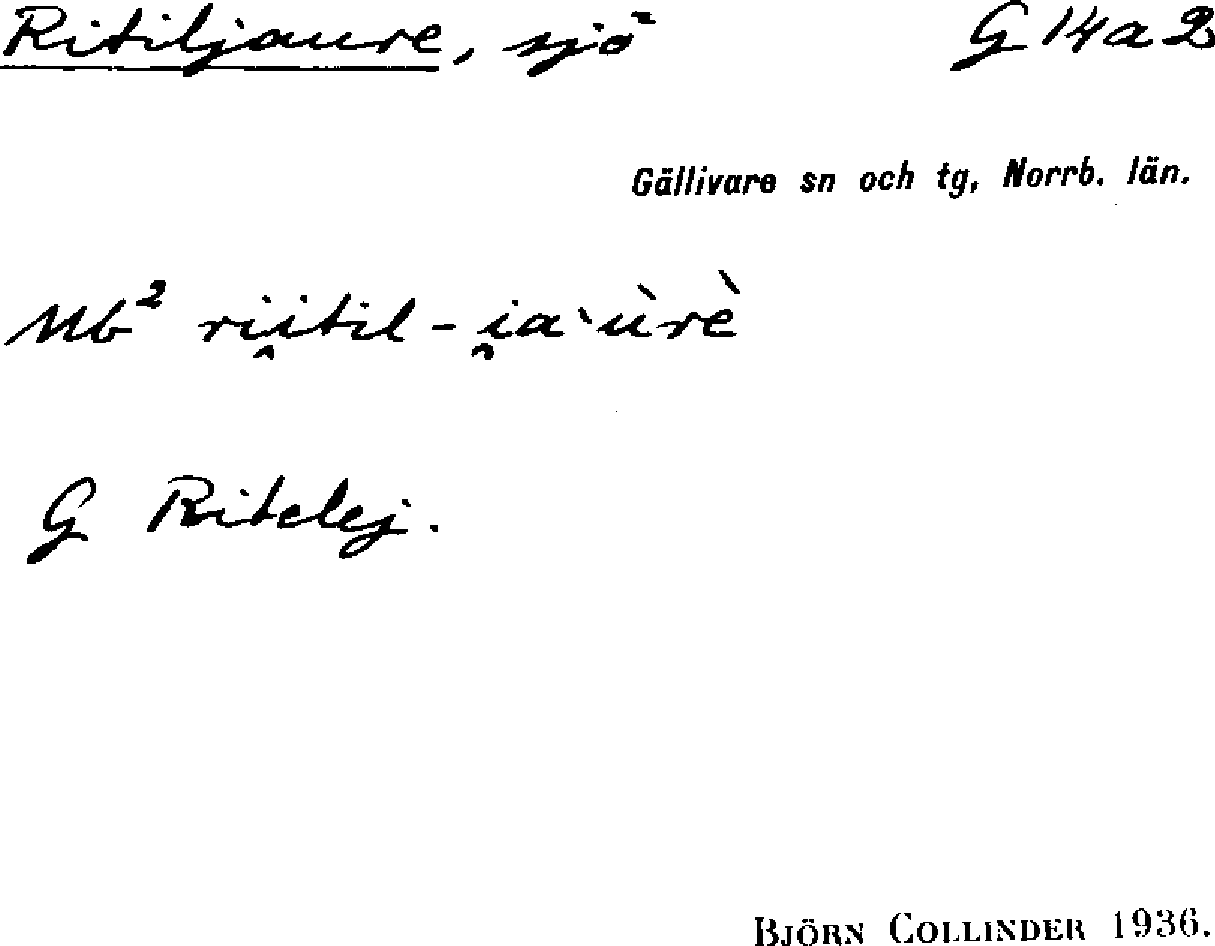 Ritiljaure, sjö G 14a2
Gällivare sn och tg, Norrb. län.
Nb² rii̭til-i̯a`ùrè
G Ritelej.
BJÖRN COLLINDER 1936.